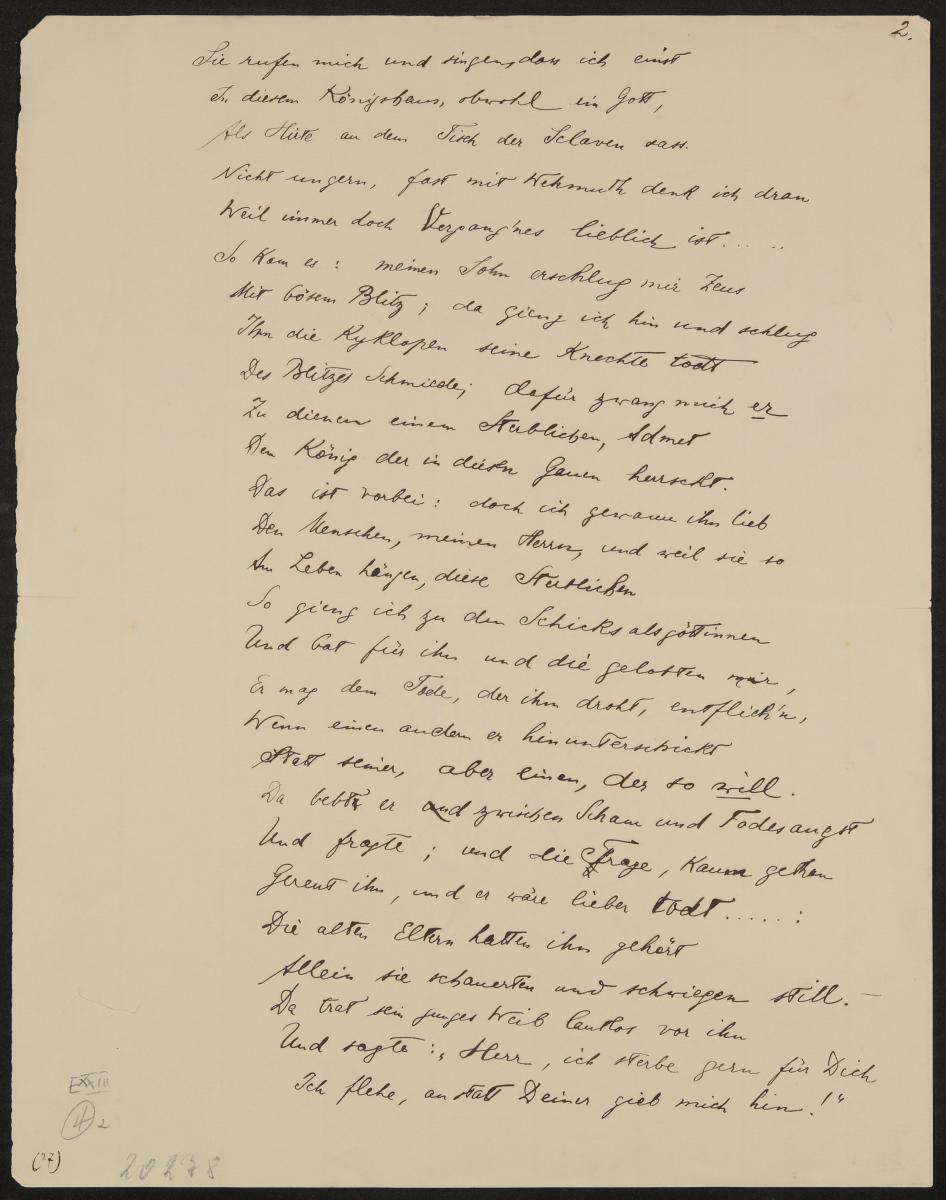 2.
Sie rufen mich und singen, dass ich einst
In diesem Königshaus, obwohl ein Gott,
Als Hirte an dem Tisch der Sclaven sass.
Nicht ungern, fast mit Wehmuth denk ich dran
Weil immer doch Vergang'nes lieblich ist.....
So kam es: meinen Sohn erschlug mir Zeus
Mit bösem Blitz; da gieng ich hin und schlug
Ihm die Kyklopen seine Knechte todt
Des Blitzes Schmiede; dafür zwang mich er
Zu dienen einem Sterblichen, Admet
Dem König der in diesen Gauen herrscht.
Das ist vorbei: doch ich gewann ihn lieb
Den Menschen, meinen Herrn, und weil sie so
Am Leben hängen, diese Sterblichen
So gieng ich zu den Schicksalsgöttinnen
Und bat für ihn und die gelobten mir,
Er mag dem Tode, der ihm droht, entflieh'n,
Wenn einen andern er hinunterschickt
Statt seiner, aber einen, der so will.
Da bebte er zwischen Scham und Todesangst
Und fragte; und die Frage, kaum gethan
Gereut ihn, und er wäre lieber todt.....:
Die alten Eltern hatten ihn gehört
Allein sie schauerten und schwiegen still.—
Da trat sein junges Weib lautlos vor ihn
Und sagte: „Herr, ich sterbe gern für Dich
Ich flehe, anstatt Deiner gieb mich hin!"
EXXIII
4 2
(27)
20278